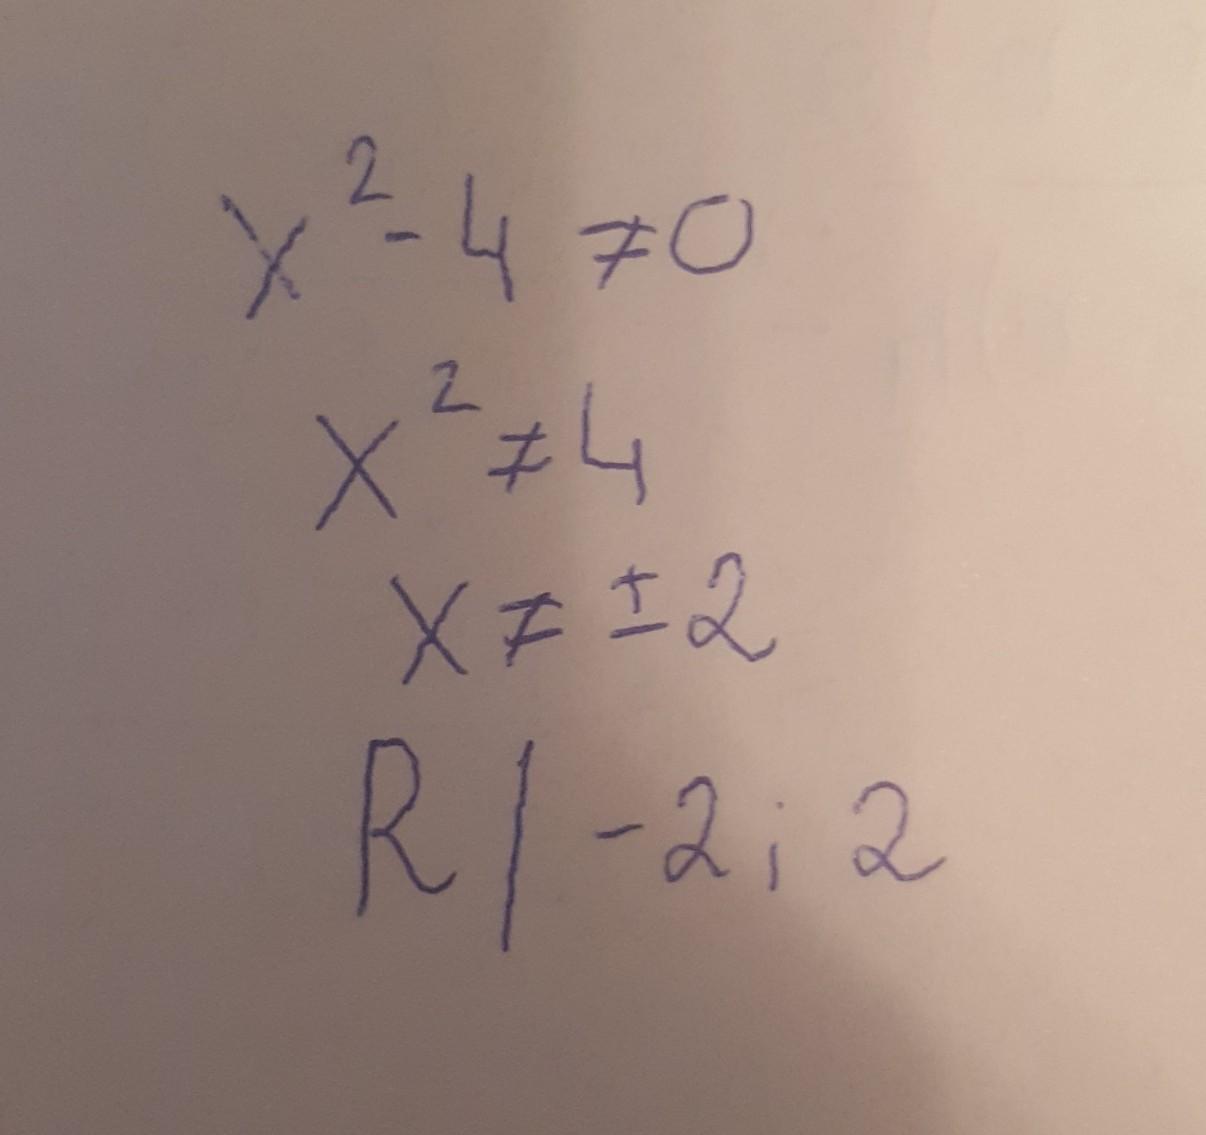 x² - 4 ≠ 0
x² ≠ 4
x ≠ ± 2
R / -2 ; 2